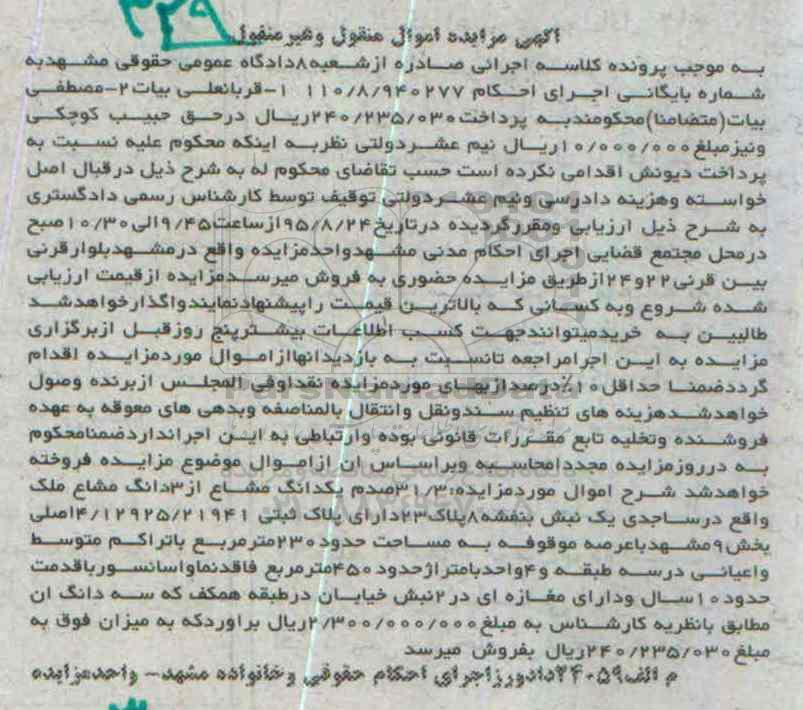 ۳۲۹
آگهی مزایده اموال منقول وغیرمنقول
به موجب پرونده کلاسه اجرائی صادره ازشعبه۸دادگاه عمومی حقوقی مشهدبه
شماره بایگانی اجرای احکام ۱۱۰/۸/۹۴۰۲۷۷ ۱-قربانعلی بیات۲-مصطفی
بیات(متضامنا)محکومندبه پرداخت۲۴۰/۲۳۵/۰۳۰ریال درحق حبیب کوچکی
ونیزمبلغ۱۰/۰۰۰/۰۰۰ریال نیم عشردولتی نظربه اینکه محکوم علیه نسبت به
پرداخت دیونش اقدامی نکرده است حسب تقاضای محکوم له به شرح ذیل درقبال اصل
خواسته وهزینه دادرسی ونیم عشردولتی توقیف توسط کارشناس رسمی دادگستری
به شرح ذیل ارزیابی ومقررگردیده درتاریخ۹۵/۸/۲۴ازساعت۹/۴۵الی۱۰/۳۰صبح
درمحل مجتمع قضایی اجرای احکام مدنی مشهدواحدمزایده واقع درمشهدبلوارقرنی
بین قرنی۲۲و۲۴ازطریق مزایده حضوری به فروش میرسدمزایده ازقیمت ارزیابی
شده شروع وبه کسانی که بالاترین قیمت راپیشنهادنمایندواگذارخواهدشد
طالبین به خریدمیتوانندجهت کسب اطلاعات بیشترپنج روزقبل ازبرگزاری
مزایده به این اجرامراجعه تانسبت به بازدیدانهاازاموال موردمزایده اقدام
گرددضمنا حداقل۱۰٪درصدازبهای موردمزایده نقداوفی المجلس ازبرنده وصول
خواهدشدهزینه های تنظیم سندونقل وانتقال بالمناصفه وبدهی های معوقه به عهده
فروشنده وتخلیه تابع مقررات قانونی بوده وارتباطی به این اجرانداردضمنامحکوم
به درروزمزایده مجددامحاسبه وبراساس ان ازاموال موضوع مزایده فروخته
خواهدشد شرح اموال موردمزایده:۳۱/۳صدم یکدانگ مشاع از۳دانگ مشاع ملک
واقع درساجدی یک نبش بنفشه۸پلاک۲۳دارای پلاک ثبتی ۴/۱۲۹۲۵/۲۱۹۴۱اصلی
بخش۹مشهدباعرصه موقوفه به مساحت حدود۲۳۰مترمربع باتراکم متوسط
واعیانی درسه طبقه و۴واحدبامتراژحدود۴۵۰مترمربع فاقدنماواسانسورباقدمت
حدود۱۰سال ودارای مغازه ای در۲نبش خیابان درطبقه همکف که سه دانگ ان
مطابق بانظریه کارشناس به مبلغ۲/۳۰۰/۰۰۰/۰۰۰ریال براوردکه به میزان فوق به
مبلغ۲۴۰/۲۳۵/۰۳۰ریال بفروش میرسد
م الف۲۴۰۵۹دادورزاجرای احکام حقوقی وخانواده مشهد- واحدمزایده
ParsNamadData